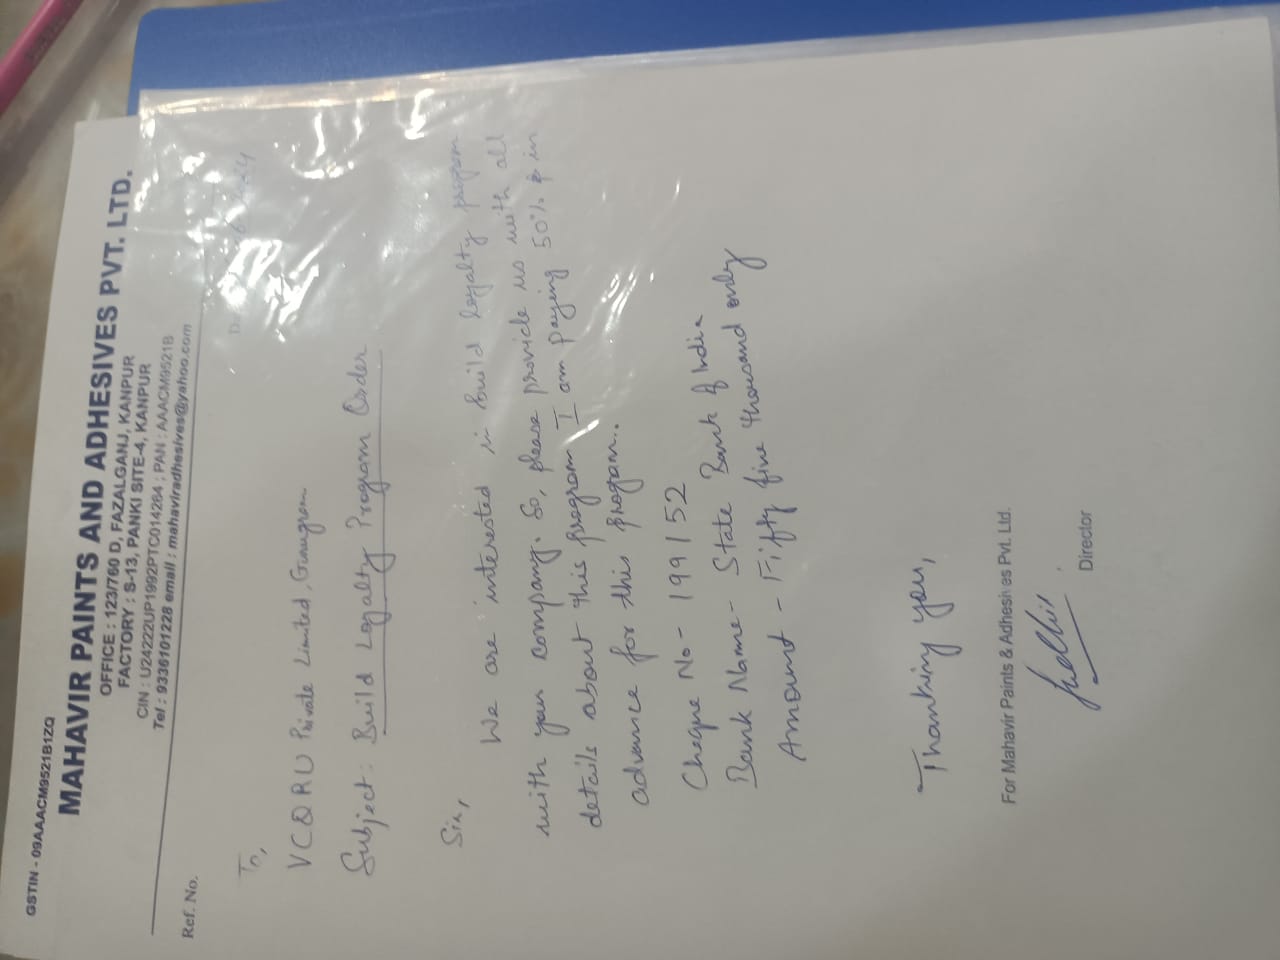 GSTIN - 09AAACM9521B1ZQ
MAHAVIR PAINTS AND ADHESIVES PVT. LTD.
OFFICE : 123/760 D, FAZALGANJ, KANPUR
FACTORY : S-13, PANKI SITE-4, KANPUR
CIN : U24222UP1992PTC014264 ; PAN : AAACM9521B
Tel : 9336101228 email : mahaviradhesives@yahoo.com
Ref. No.
2024
To,
VCQRU Private Limited, Gurugram
Subject: Build Loyalty Program Order
Sir,
We are interested in build loyalty program
with your company. So, please provide us with all
details about this program I am paying 50% in
advance for this progam..
Cheque No - 199152
Bank Name - State Bank of India
Amount - Fifty five thousand only
Thanking you,
For Mahavir Paints & Adhesives Pvt. Ltd.
Director